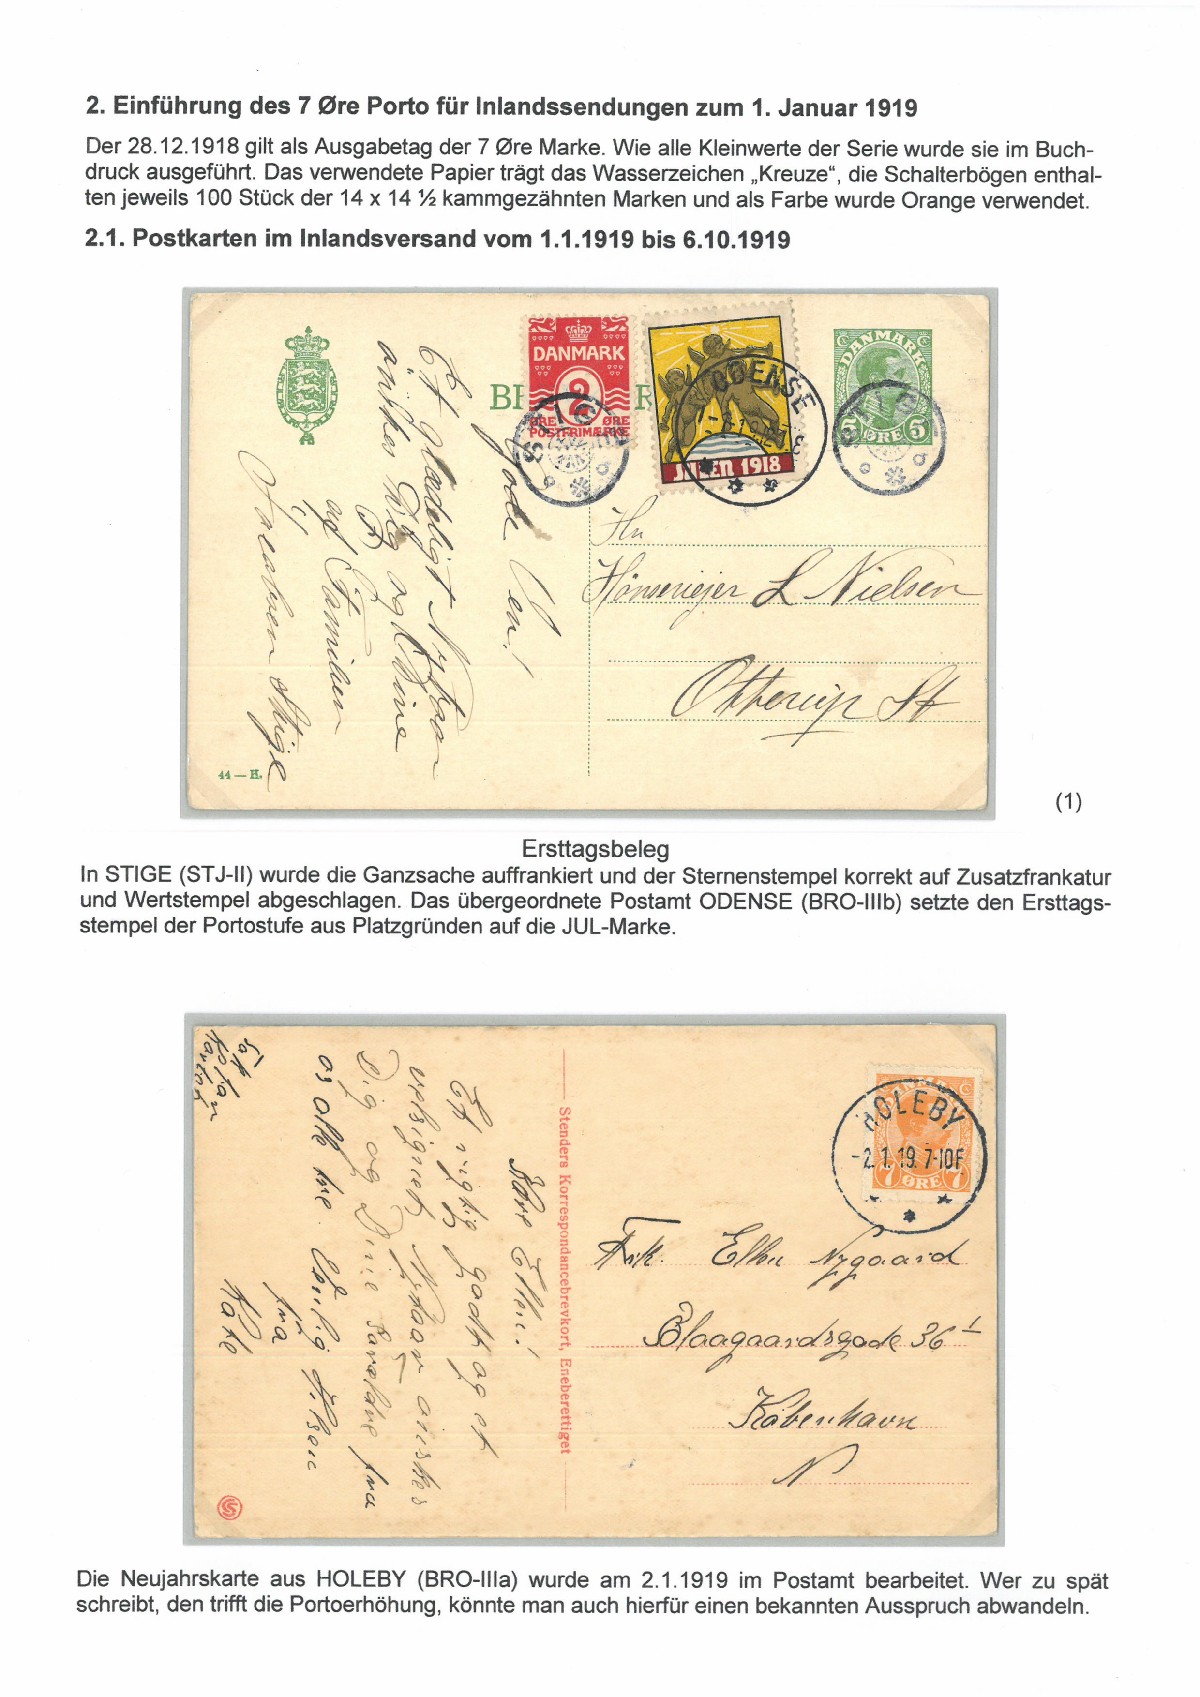 2. Einführung des 7 Øre Porto für Inlandssendungen zum 1. Januar 1919
Der 28.12.1918 gilt als Ausgabetag der 7 Øre Marke. Wie alle Kleinwerte der Serie wurde sie im Buch-
druck ausgeführt. Das verwendete Papier trägt das Wasserzeichen „Kreuze“, die Schalterbögen enthal-
ten jeweils 100 Stück der 14 x 14 ½ kammgezähnten Marken und als Farbe wurde Orange verwendet.
2.1. Postkarten im Inlandsversand vom 1.1.1919 bis 6.10.1919
DANMARK
2
ØRE ØRE
POSTFRIMÆRKE
STIGE
ODENSE
JULEN 1918
DANMARK
5 ØRE 5
STIGE
Gode Ven!
Et Glædeligt Nytaar
ønskes Dig og Dine
af Familien
Stige
Hr
Hønseriejer L Nielsen
Otterup St
44 — H.
(1)
Ersttagsbeleg
In STIGE (STJ-II) wurde die Ganzsache auffrankiert und der Sternenstempel korrekt auf Zusatzfrankatur
und Wertstempel abgeschlagen. Das übergeordnete Postamt ODENSE (BRO-IIIb) setzte den Ersttags-
stempel der Portostufe aus Platzgründen auf die JUL-Marke.
DANMARK
7 ØRE 7
HOLEBY
-2.1.19. 7-10F
Kære Ellen!
Et rigtig godt og et
velsignet Nytaar ønskes
Dig og Dine Forældre fra
os alle her.
fra
Stenders Korrespondancebrevkort, Eneberettiget
Frk. Nygaard
Blaagaardsgade 36 1
København
N
Die Neujahrskarte aus HOLEBY (BRO-IIIa) wurde am 2.1.1919 im Postamt bearbeitet. Wer zu spät
schreibt, den trifft die Portoerhöhung, könnte man auch hierfür einen bekannten Ausspruch abwandeln.